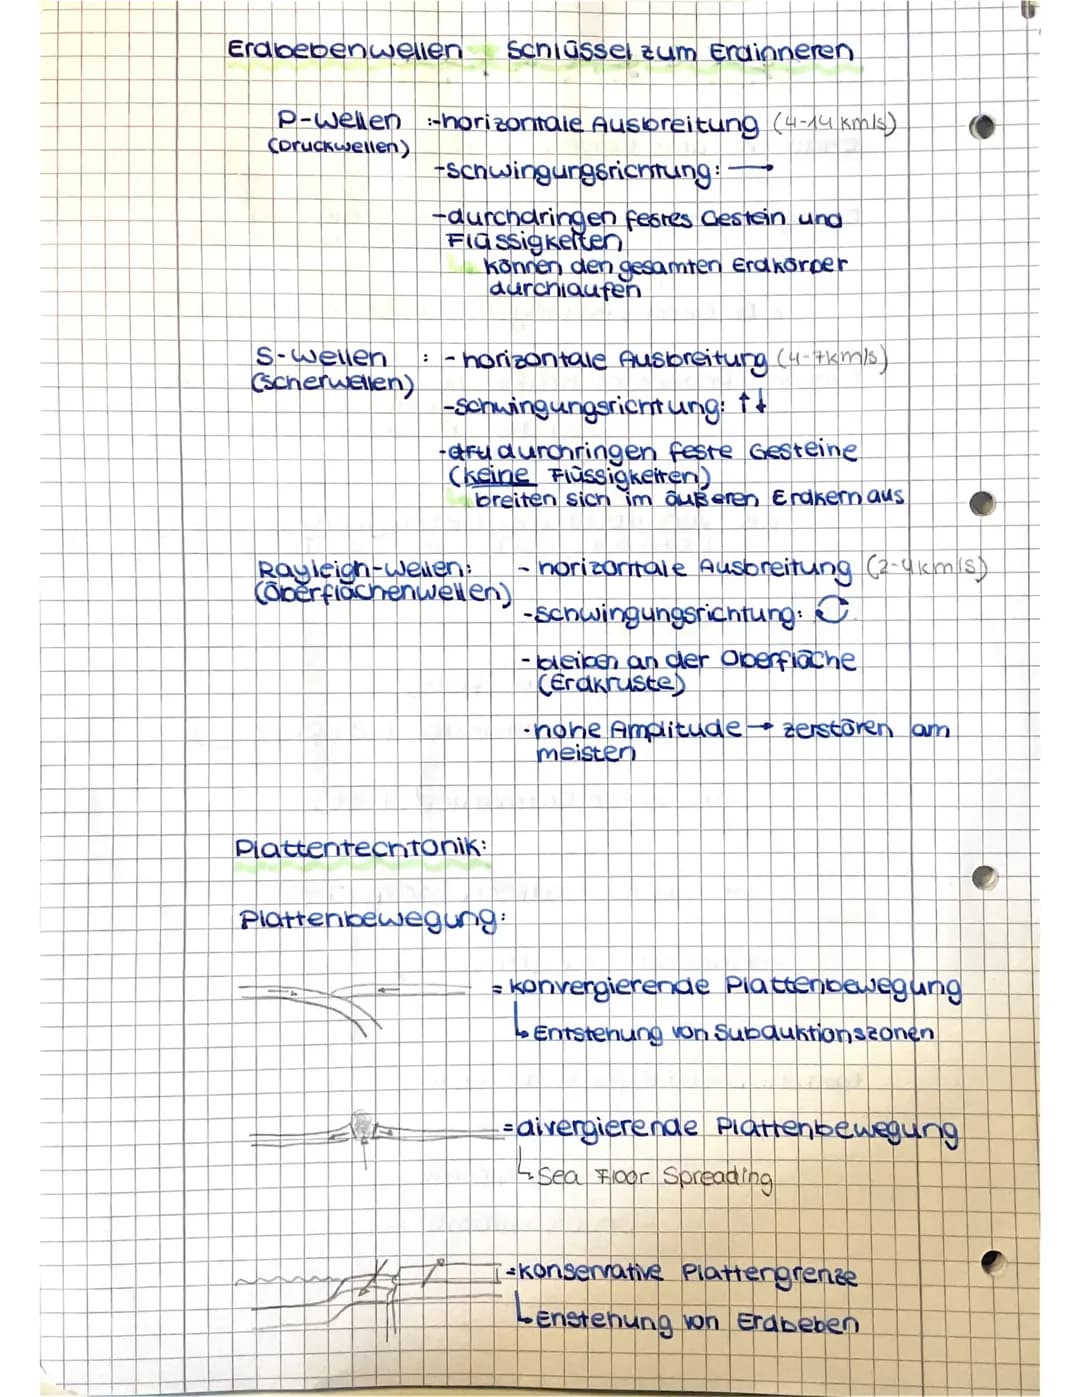 Erdbebenwellen Schlüssel zum Erdinneren
P-Wellen :-horizontale Ausbreitung (4-14 km/s)
(Druckwellen)
-Schwingungsrichtung: →
-durchdringen festes Gestein und
Flüssigkeiten
können den gesamten Erdkörper
durchlaufen
S-Wellen : - horizontale Ausbreitung (4-7km/s)
(Scherwellen)
-Schwingungsrichtung: ↑↓
- durchringen feste Gesteine
(keine Flüssigkeiten)
breiten sich im äußeren Erdkern aus
Rayleigh-Wellen: - horizontale Ausbreitung (2-4km/s)
(Oberflächenwellen)
-Schwingungsrichtung:
- bleiben an der Oberfläche
(Erdkruste)
-hohe Amplitude → zerstören am
meisten
Plattentechtonik:
Plattenbewegung:
= konvergierende Plattenbewegung
↳ Entstehung von Subduktionszonen
=divergierende Plattenbewegung
↳ Sea Floor Spreading
=konservative Plattergrenze
↳ Enstehung von Erdbeben